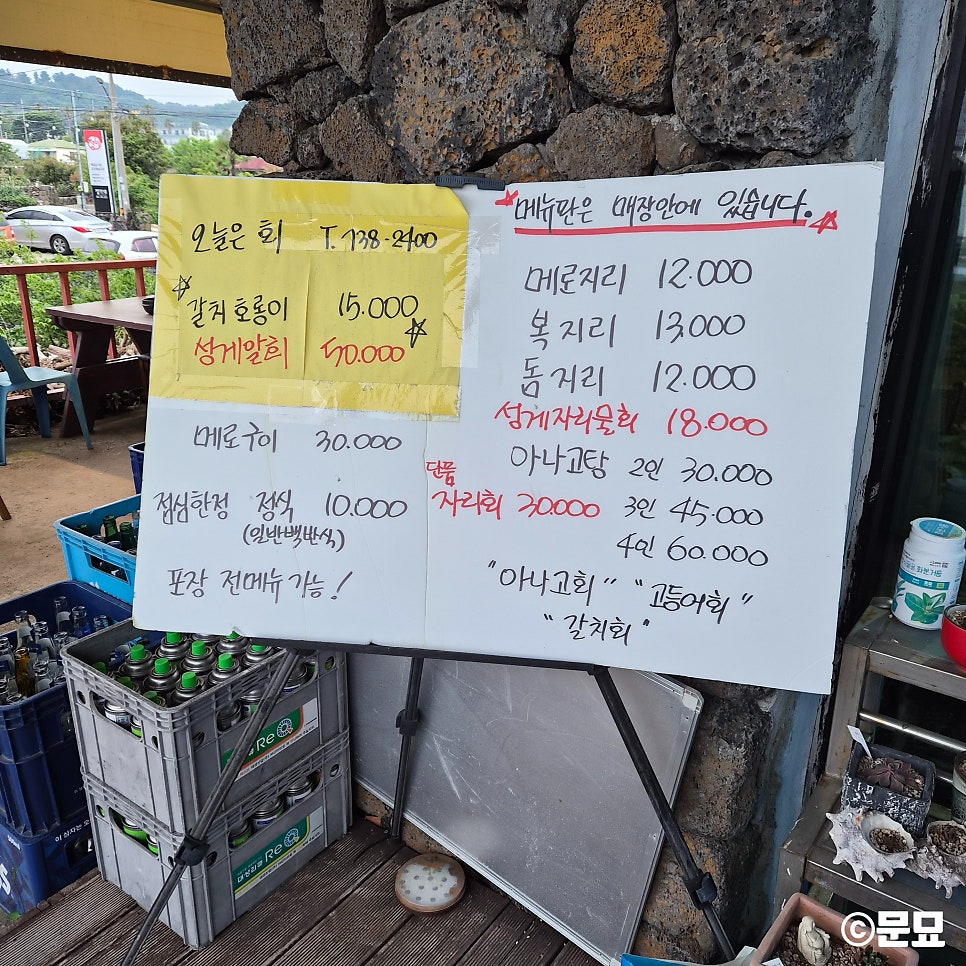 오늘은 회 T.738-2400
갈치호롱이 15.000
성게알회 50.000
메로구이 30.000
점심한정 정식 10.000
(일반백반식)
포장 전메뉴 가능!
메뉴판은 매장안에 있습니다.
메로지리 12.000
복지리 13,000
돔지리 12.000
성게자리물회 18.000
아나고탕 2인 30.000
단품
자리회 30.000 3인 45.000
4인 60.000
"아나고회" "고등어회"
"갈치회"
Re
Re
©문묘